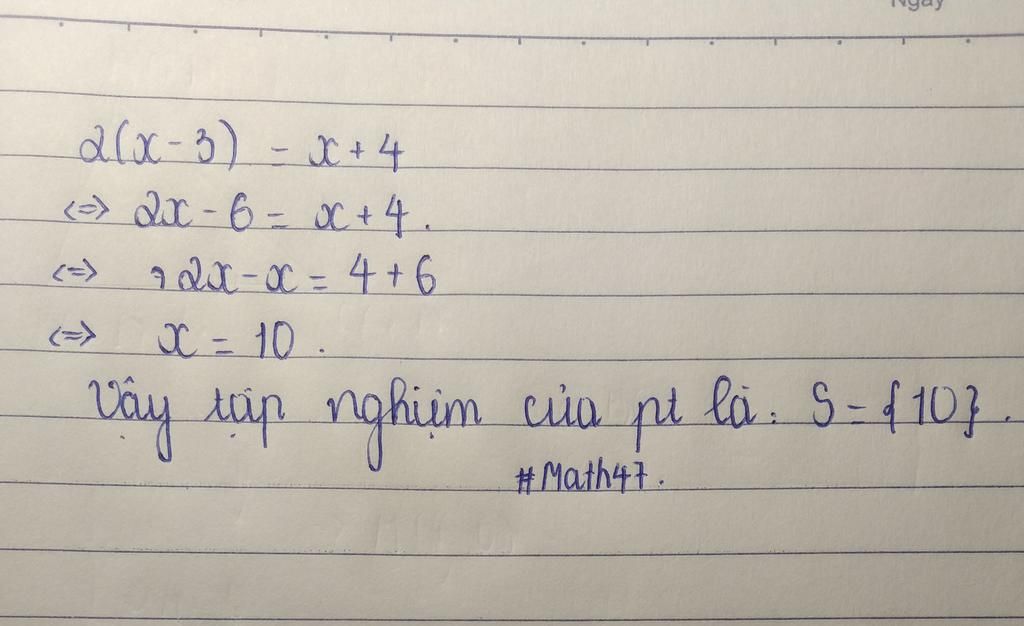 Ngày
2(x - 3) = x + 4
<=> 2x - 6 = x + 4.
<=> 2x - x = 4 + 6
<=> x = 10.
Vậy tập nghiệm của pt là: S = {10}.
#Math47.